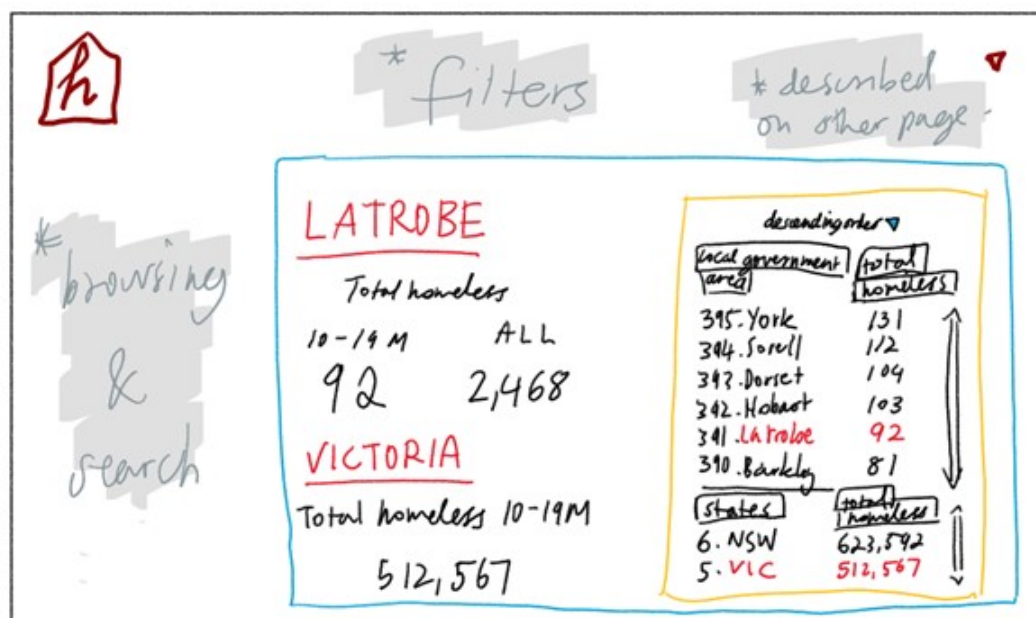 h
* filters
* described
on other page.
* browsing
&
search
LATROBE
Total homeless
10-19 M ALL
92 2,468
VICTORIA
Total homeless 10-19M
512,567
descending order
local government total
area homeless
395. York 131
394. Sorell 112
393. Dorset 104
392. Hobart 103
391. Latrobe 92
390. Barkley 81
states total
homeless
6. NSW 623,592
5. VIC 512,567